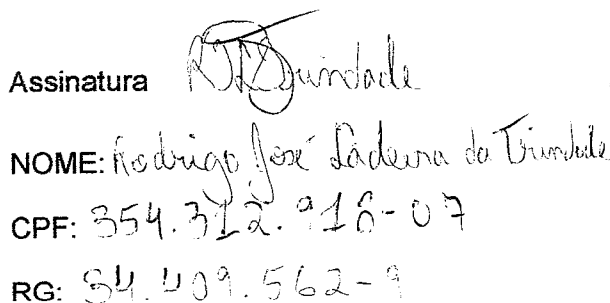 Assinatura RJLTrindade
NOME: Rodrigo José Ladeira da Trindade
CPF: 354.312.918-07
RG: 34.409.562-9